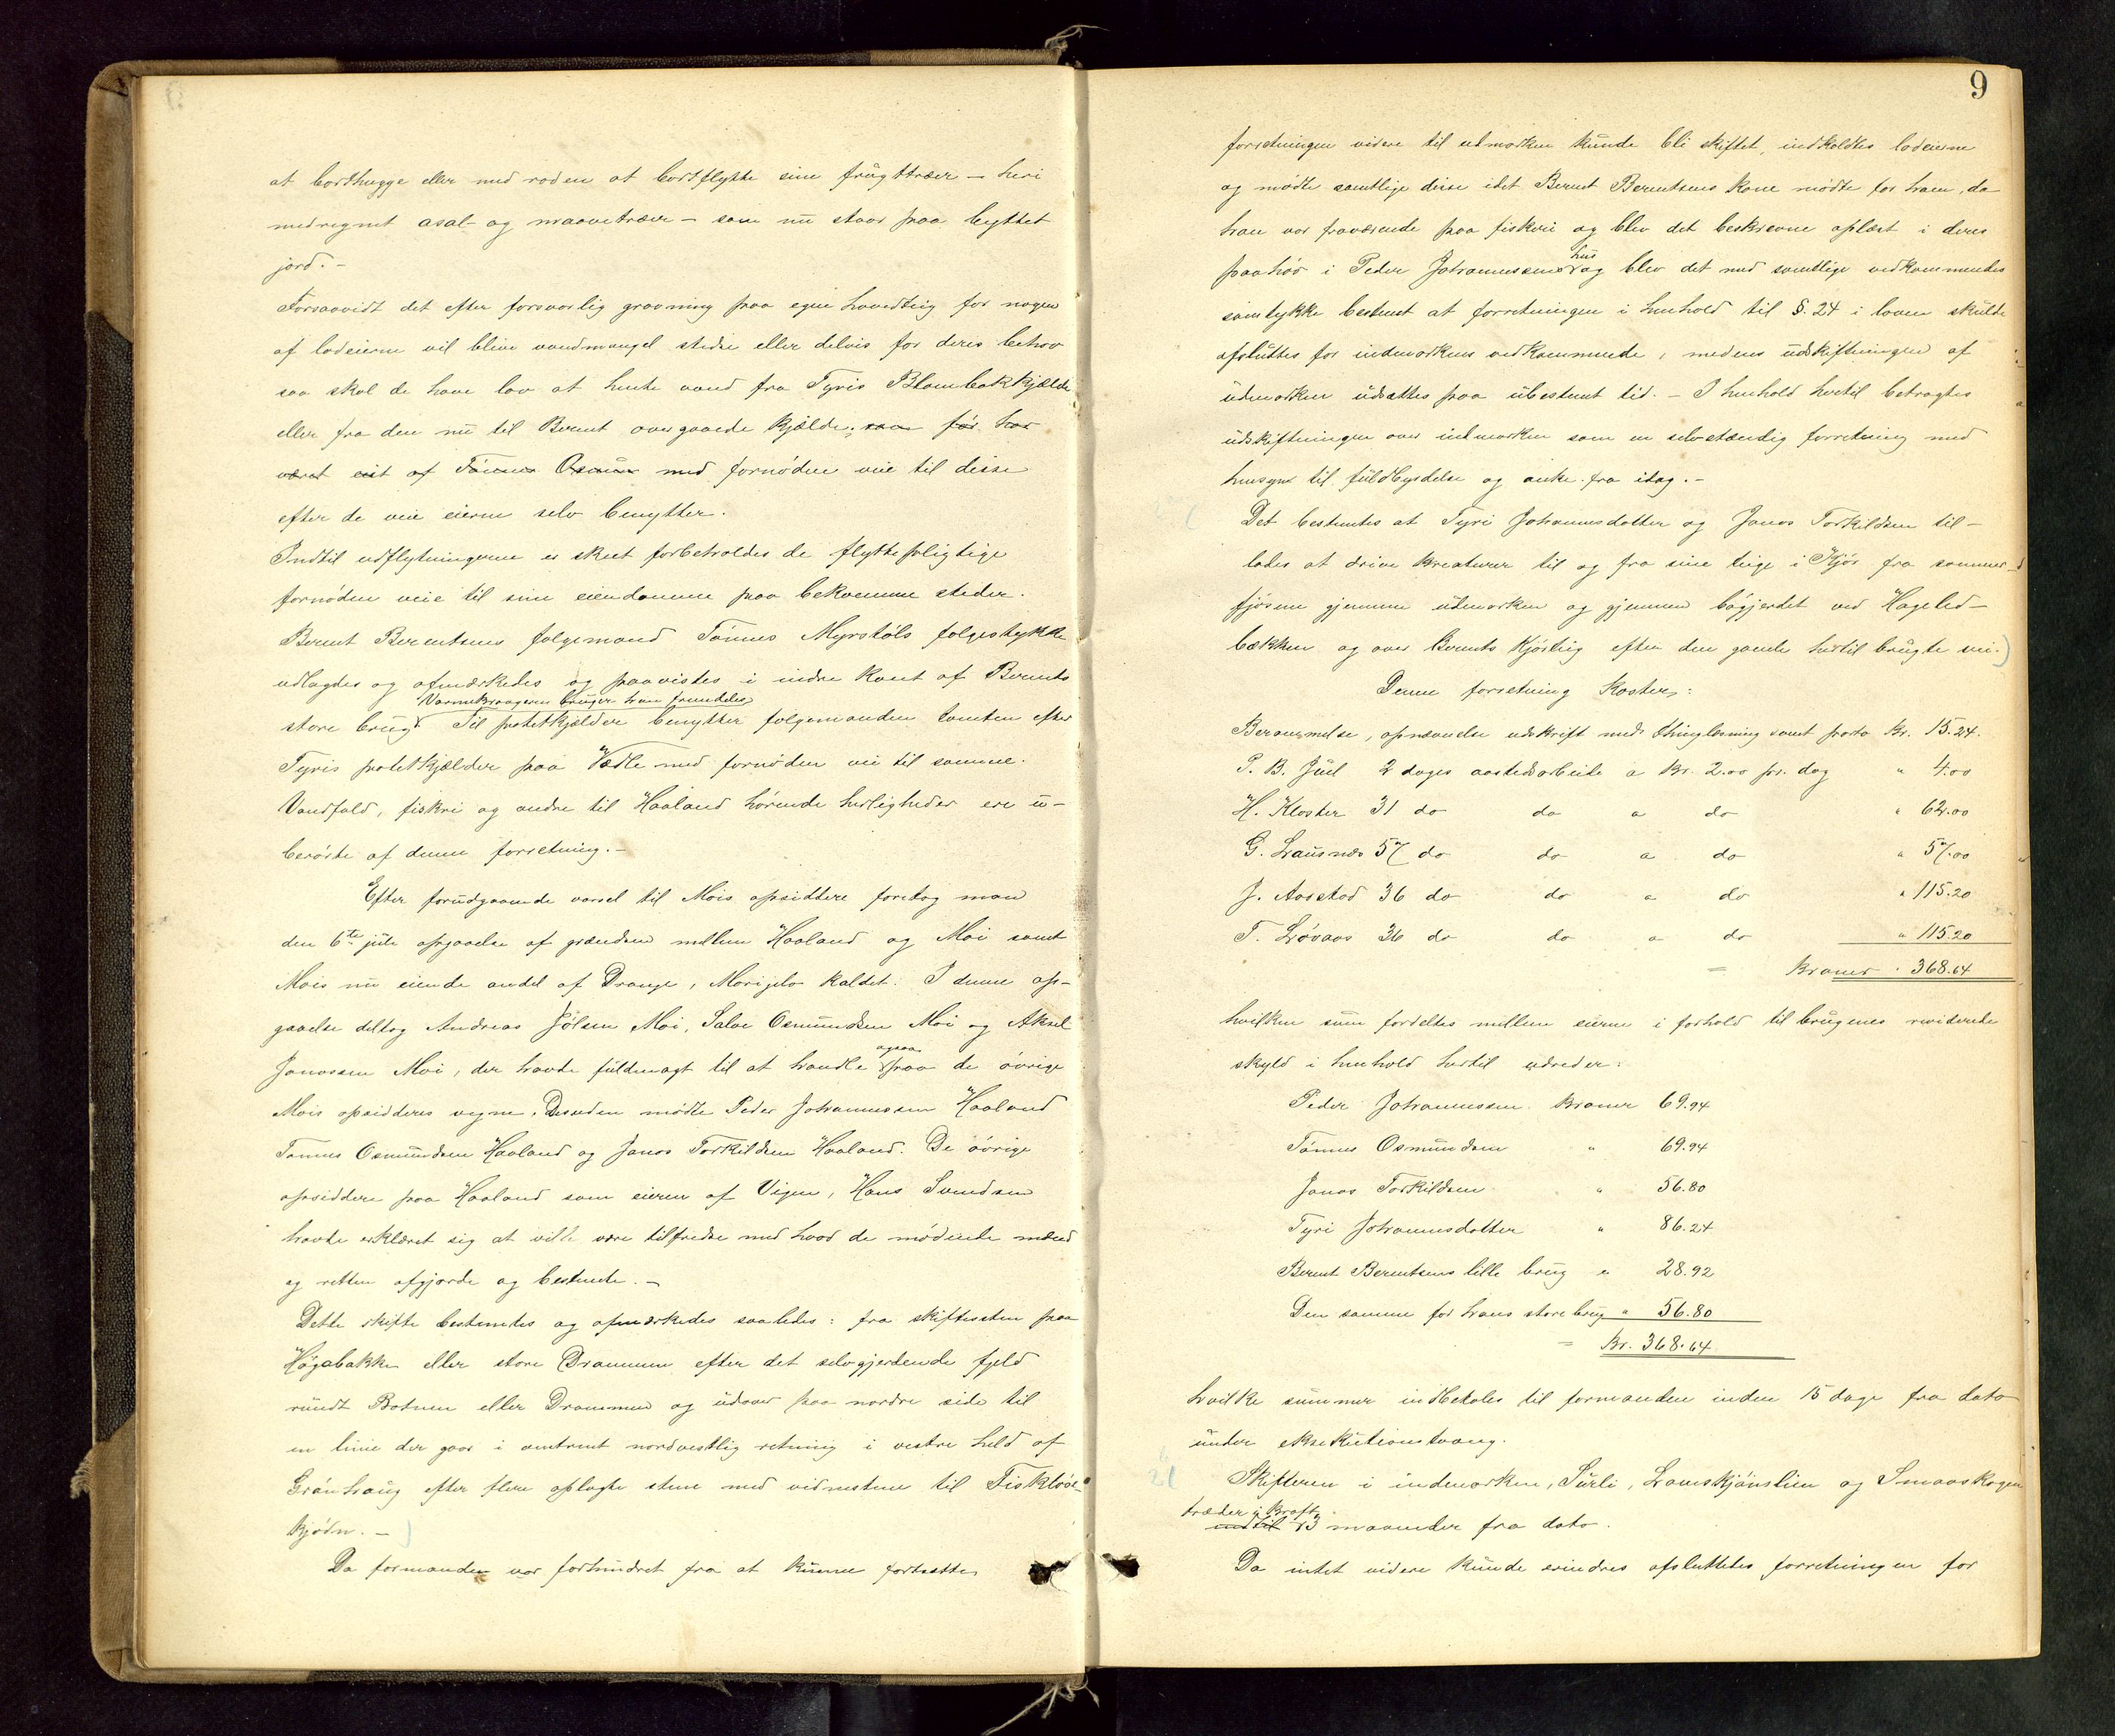 at borthugge eller med roden at bortflytte sine frugttrær – heri
medregnet asal- og maavetræer – som nu staar paa byttet
jord. –
Forsaavidt det efter forsvarlig gravning paa egen hovedteig for nogen
af lodeierne vil blive vandmangel stedse eller delvis for deres behov
saa skal de have lov at hente vand fra Tyris Blombakkjælde
eller fra den nu til Bernt overgaaede kjælde, som før har
været eiet af Tönnes Osmun med fornødne veie til disse
efter de veie eierne selv benytter.
Indtil udflytningerne er skeet forbeholdes de flyttepligtige
fornøden veie til sine eiendomme paa bekvemme steder.
Bernt Berentsens folgemand Tönnes Myrstöls folgestykke
udlagdes og afmærkedes og paavistes i indre kant af Bernts
Varmekraagern bruger han fremdeles
store brug. Til potetkjælder benytter folgemanden tomten efter
Tyris potetkjælder paa Vædle med fornøden vei til samme.
Vandfald, fiskri og andre til Haaland hørende herligheder ere u-
berörte af denne forretning. –
Efter forudgaaende varsel til Mois opsiddere foretog man
den 6te juli opgaaelse af grændsen mellem Haaland og Moi samt
Mois nu eiende andel af Drange, Morigjelo kaldet. I denne op-
gaaelse deltog Andreas Jölsen Moi, Salve Osmundsen Moi og Aksel
Jonassen Moi, der havde fuldmagt til at handle ogsaa paa de övrige
Mois opsidderes vegne. Desuden mødte Peder Johannessen Haaland
Tönnes Osmundsen Haaland og Jonas Torkildsen Haaland. De övrige
opsiddere paa Haaland som eieren af Vigen, Hans Svendsen
havde erklæret sig at ville være tilfredse med hvad de mødende mænd
og retten afgjorde og bestemte. –
Dette skifte bestemtes og afmærkedes saaledes: fra skiftesten paa
Högabakke eller store Drammen efter det selvgjerdende fjeld
rundt Botnen eller Drammen og udover paa nordre side til
en linie der gaar i omtrent nordvestlig retning i vestre held af
Grönhaug efter flere oplagte stene med vidnestene til Fisklös-
kjødn. –
Da formanden var forhindret fra at kunne fortsætte
9
forretningen videre til udmarken kunde bli skiftet, indkaldtes lodeierne
og mødte samtlige disse idet Bernt Berentsens kone mødte for ham, da
han var fraværende paa fiskeri og blev det beskrevne oplæst i deres
paahör i Peder Johannessens hus og blev det med samtlige vedkommendes
samtykke bestemt at forretningen i henhold til §. 24 i loven skulde
afsluttes for indmarkens vedkommende, medens udskiftningen af
udmarken udsættes paa ubestemt tid. – I henhold hertil betragtes
udskiftningen over indmarken som en selvstændig forretning med
hensyn til fuldbyrdelse og anke fra idag. –
Det bestemtes at Tyri Johannesdatter og Jonas Torkildsen til-
lades at drive kreaturer til og fra sine teige i Kjör fra sommer-
fjösene gjennem udmarken og gjennem bögjerdet ved Hageled-
bækken og over Bernts Kjörteig efter den gamle hertil brugte vei.
Denne forretning koster:
Berammelse, opnævnelse udskrift med thinglæsning samt porto Kr. 15.24.
P. B. Juel 2 dages aastedsarbeide a Kr. 2.00 pr. dag " 4.00
H. Kloster 31 do do a do " 62.00
G. Lausnes 57 do do a do " 57.00
J. Aarstad 36 do do a do " 115.20
T. Lövaas 36 do do a do " 115.20
= Kroner 368.64
hvilken sum fordeltes mellem eierne i forhold til brugenes reviderede
skyld i henhold hertil udreder:
Peder Johannessen Kroner 69.94
Tönnes Osmundsen " 69.94
Jonas Torkildsen " 56.80
Tyri Johannesdatter " 86.24
Bernt Berentsens lille brug " 28.92
Den samme for hans store brug " 56.80
= Kr. 368.64.
hvilke summer indbetales til formanden inden 15 dage fra dato
under eksekutionstvang.
Skifteren i indmarken, Surli, Lomskjönslien og Smaaskogen
træder i kraft
indtil 13 maaneder fra dato.
Da intet videre kunde erindres afsluttedes forretningen for